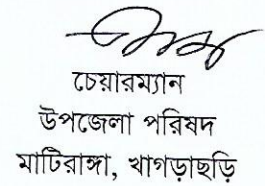 চেয়ারম্যান
উপজেলা পরিষদ
মাটিরাঙ্গা, খাগড়াছড়ি